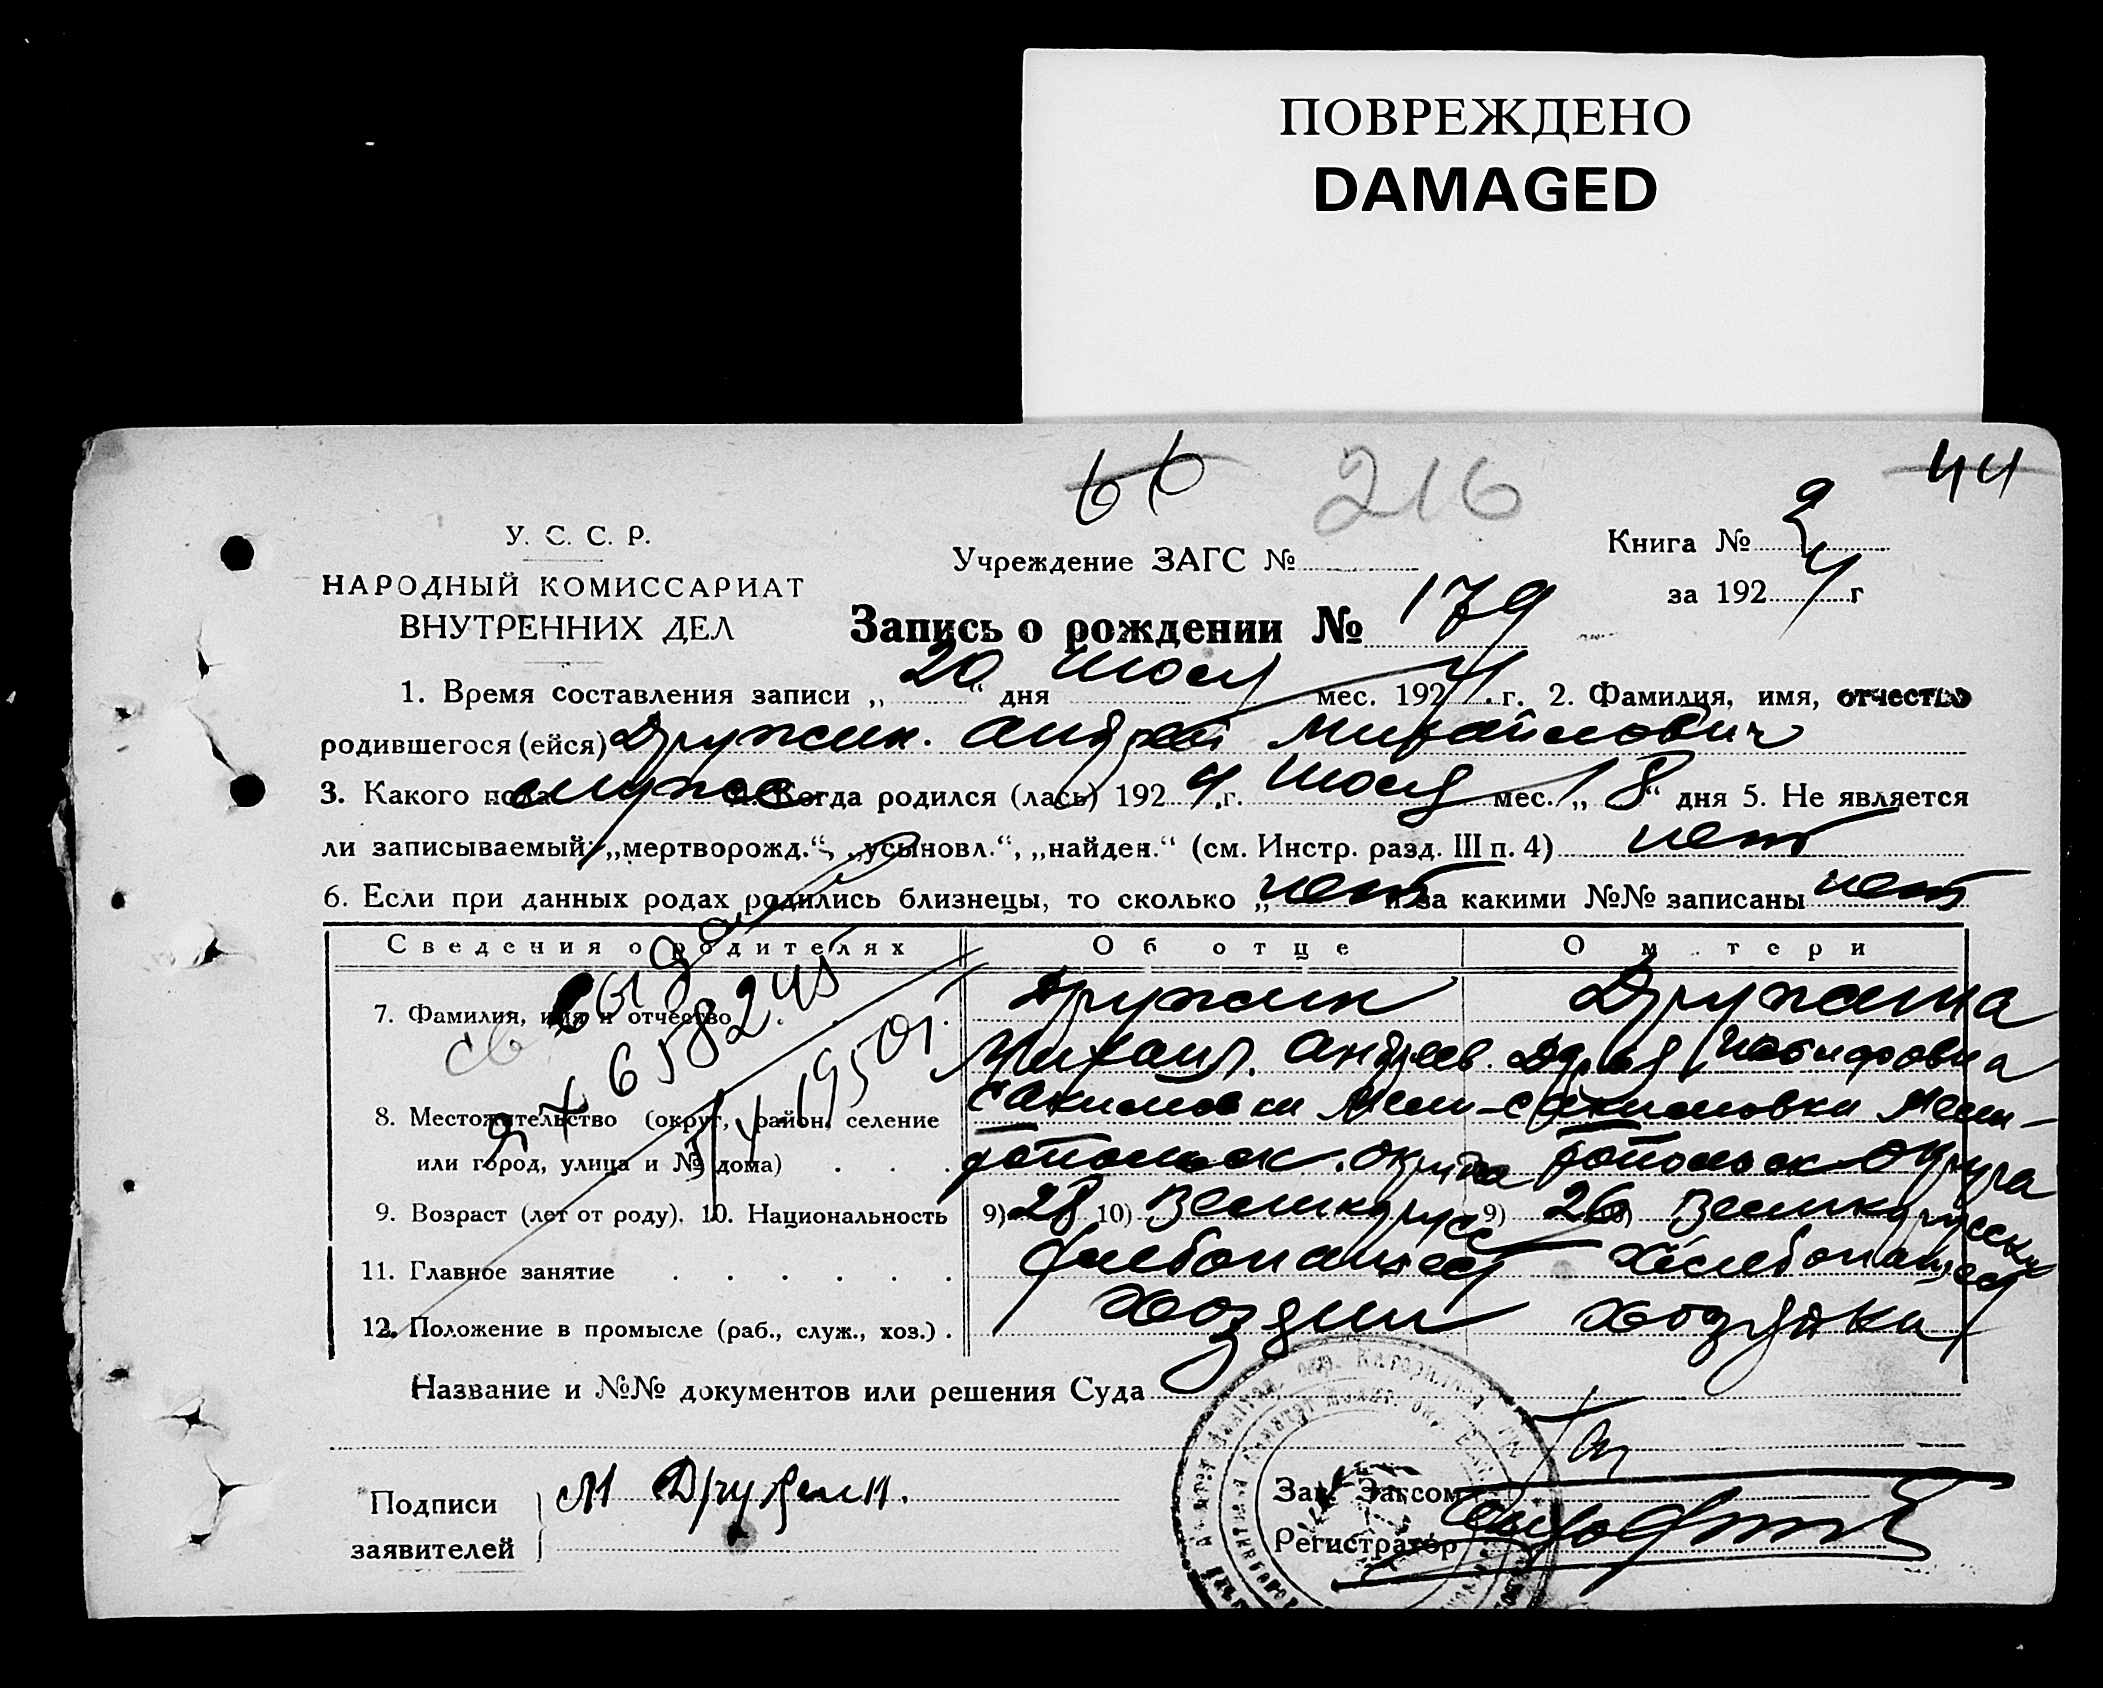 ПОВРЕЖДЕНО
DAMAGED
66 216 44
У. С. С. Р.
НАРОДНЫЙ КОМИССАРИАТ
ВНУТРЕННИХ ДЕЛ
Учреждение ЗАГС №
Книга № 2
за 1924 г
Запись о рождении № 179
1. Время составления записи „20“ дня Июля мес. 1924 г. 2. Фамилия, имя, отчество
родившегося (ейся) Дружин. Андрей Михайлович
3. Какого пола мужс 4. Когда родился (лась) 1924 г. Июля мес. „18“ дня 5. Не является
ли записываемый: „мертворожд.“, „усыновл.“, „найден.“ (см. Инстр. разд. III п. 4) нет
6. Если при данных родах родились близнецы, то сколько „нет и за какими №№ записаны нет
Сведения о родителях Об отце О м тери
7. Фамилия, имя и отчество Дружин Дружина
Михаил. Андреев. Дарья
8. Местожительство (округ, район, селение Акимовки Мели- Акимовки Мели-
или город, улица и № дома) топольск. округа топольск округа
9. Возраст (лет от роду). 10. Национальность 9) 28 10) Великорусс 9) 26 Великорусск
11. Главное занятие Хлебопашест Хлебопашест
12. Положение в промысле (раб., служ., хоз.) Хозяин Хозяйка
Название и №№ документов или решения Суда
Подписи
заявителей
М Дружин.
Зав. Загсом
Регистратор
658245
1950г.